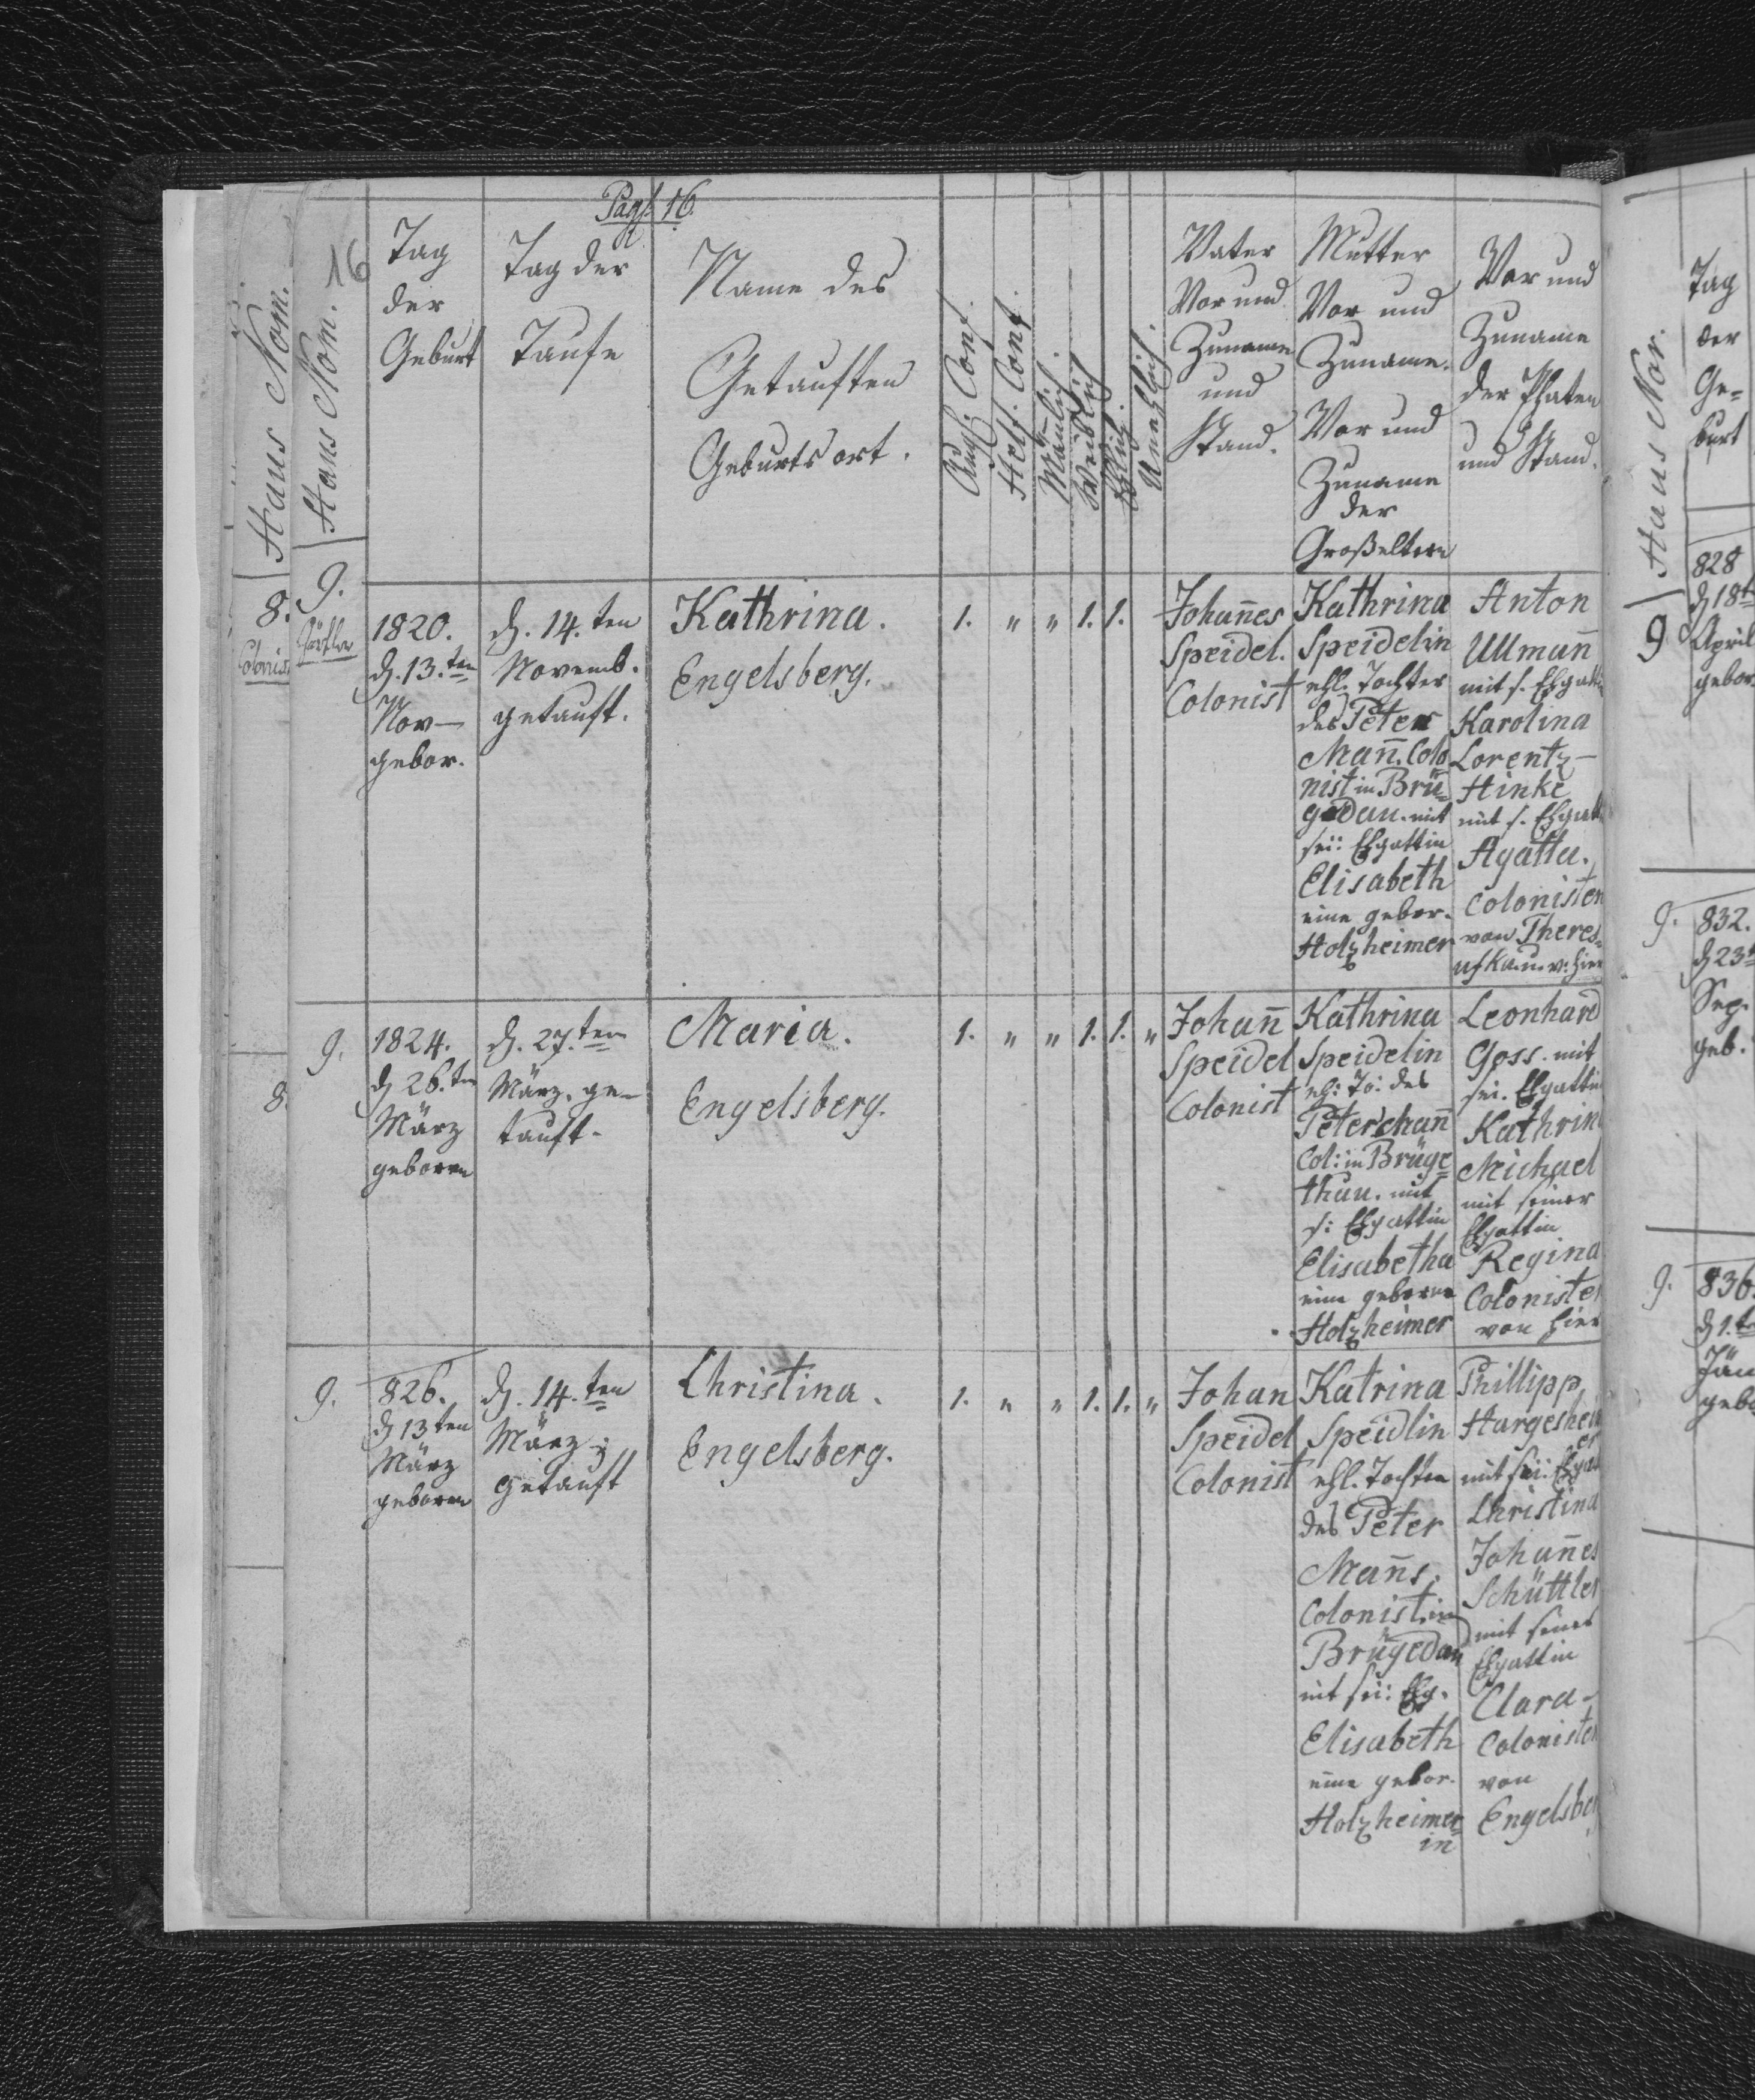 Pag: 16.
16
Haus Nom.
Haus Nom.
Tag
der
Geburt
Tag der
Taufe
Name des
Getauften
Geburtsort.
Augs. Conf.
Helf. Conf.
Mänlich
Weiblich
Ehlich
Unehlich.
Vater
Vor und
Zuname
und
Stand.
Mutter
Vor und
Zuname.
Vor und
Zuname
der
Großeltern
Vor und
Zuname
der Pathen
und Stand.
8.
Colonist
9.
1820.
d. 13.ten
Nov
gebor.
d. 14.ten
Novemb.
getauft.
Kathrina.
Engelsberg.
1. " " 1. 1.
Johañes
Speidel.
Colonist
Kathrina
Speidelin
ehl. Tochter
des Peter
Mañ. Colo
nist in Brü=
gedau. mit
sei: Ehgattin
Elisabeth
eine gebor.
Holzheimer
Anton
Ullmañ
mit s. Ehgattin
Karolina
Lorentz
Hinke
mit s. Ehgatt
Agatta.
Colonisten
von Theres=
ufkau u. v: hier
8.
9.
1824.
d 26.ten
März
geboren
d. 27.ten
März. ge-
tauft.
Maria.
Engelsberg.
1. " " 1. 1. "
Johañ
Speidel
Colonist
Kathrina
Speidelin
eh: To: des
Peter Mañ
Col: in Brüge
thau. mit
s: Ehgattin
Elisabetha
eine geborne
Holzheimer
Leonhard
Goss. mit
sei. Ehgattin
Kathrin
Michael
mit seiner
Ehgattin
Regina
Coloniste
von hier
9.
826.
d 13ten
März
geboren
d. 14.ten
März
getauft
Christina.
Engelsberg.
1. " " 1. 1. "
Johan
Speidel
Colonist
Katrina
Speidlin
ehl. Tochter
des Peter
Mañs.
Colonist in
Brügedau
mit sei: Ehg.
Elisabeth
eine gebor.
Holzheimer=
in
Phillipp
Hargeshei
er
mit sei: Ehgat
Christina
Johañes
Schüttler
mit seiner
Ehgattin
Clara
Colonisten
von
Engelsber
Haus Nor.
Tag
der
Ge=
burt
9
828
d 18t
April
gebor.
9.
832.
d 23t
Sep.
geb.
9.
836.
d 1.te
Jän
gebo